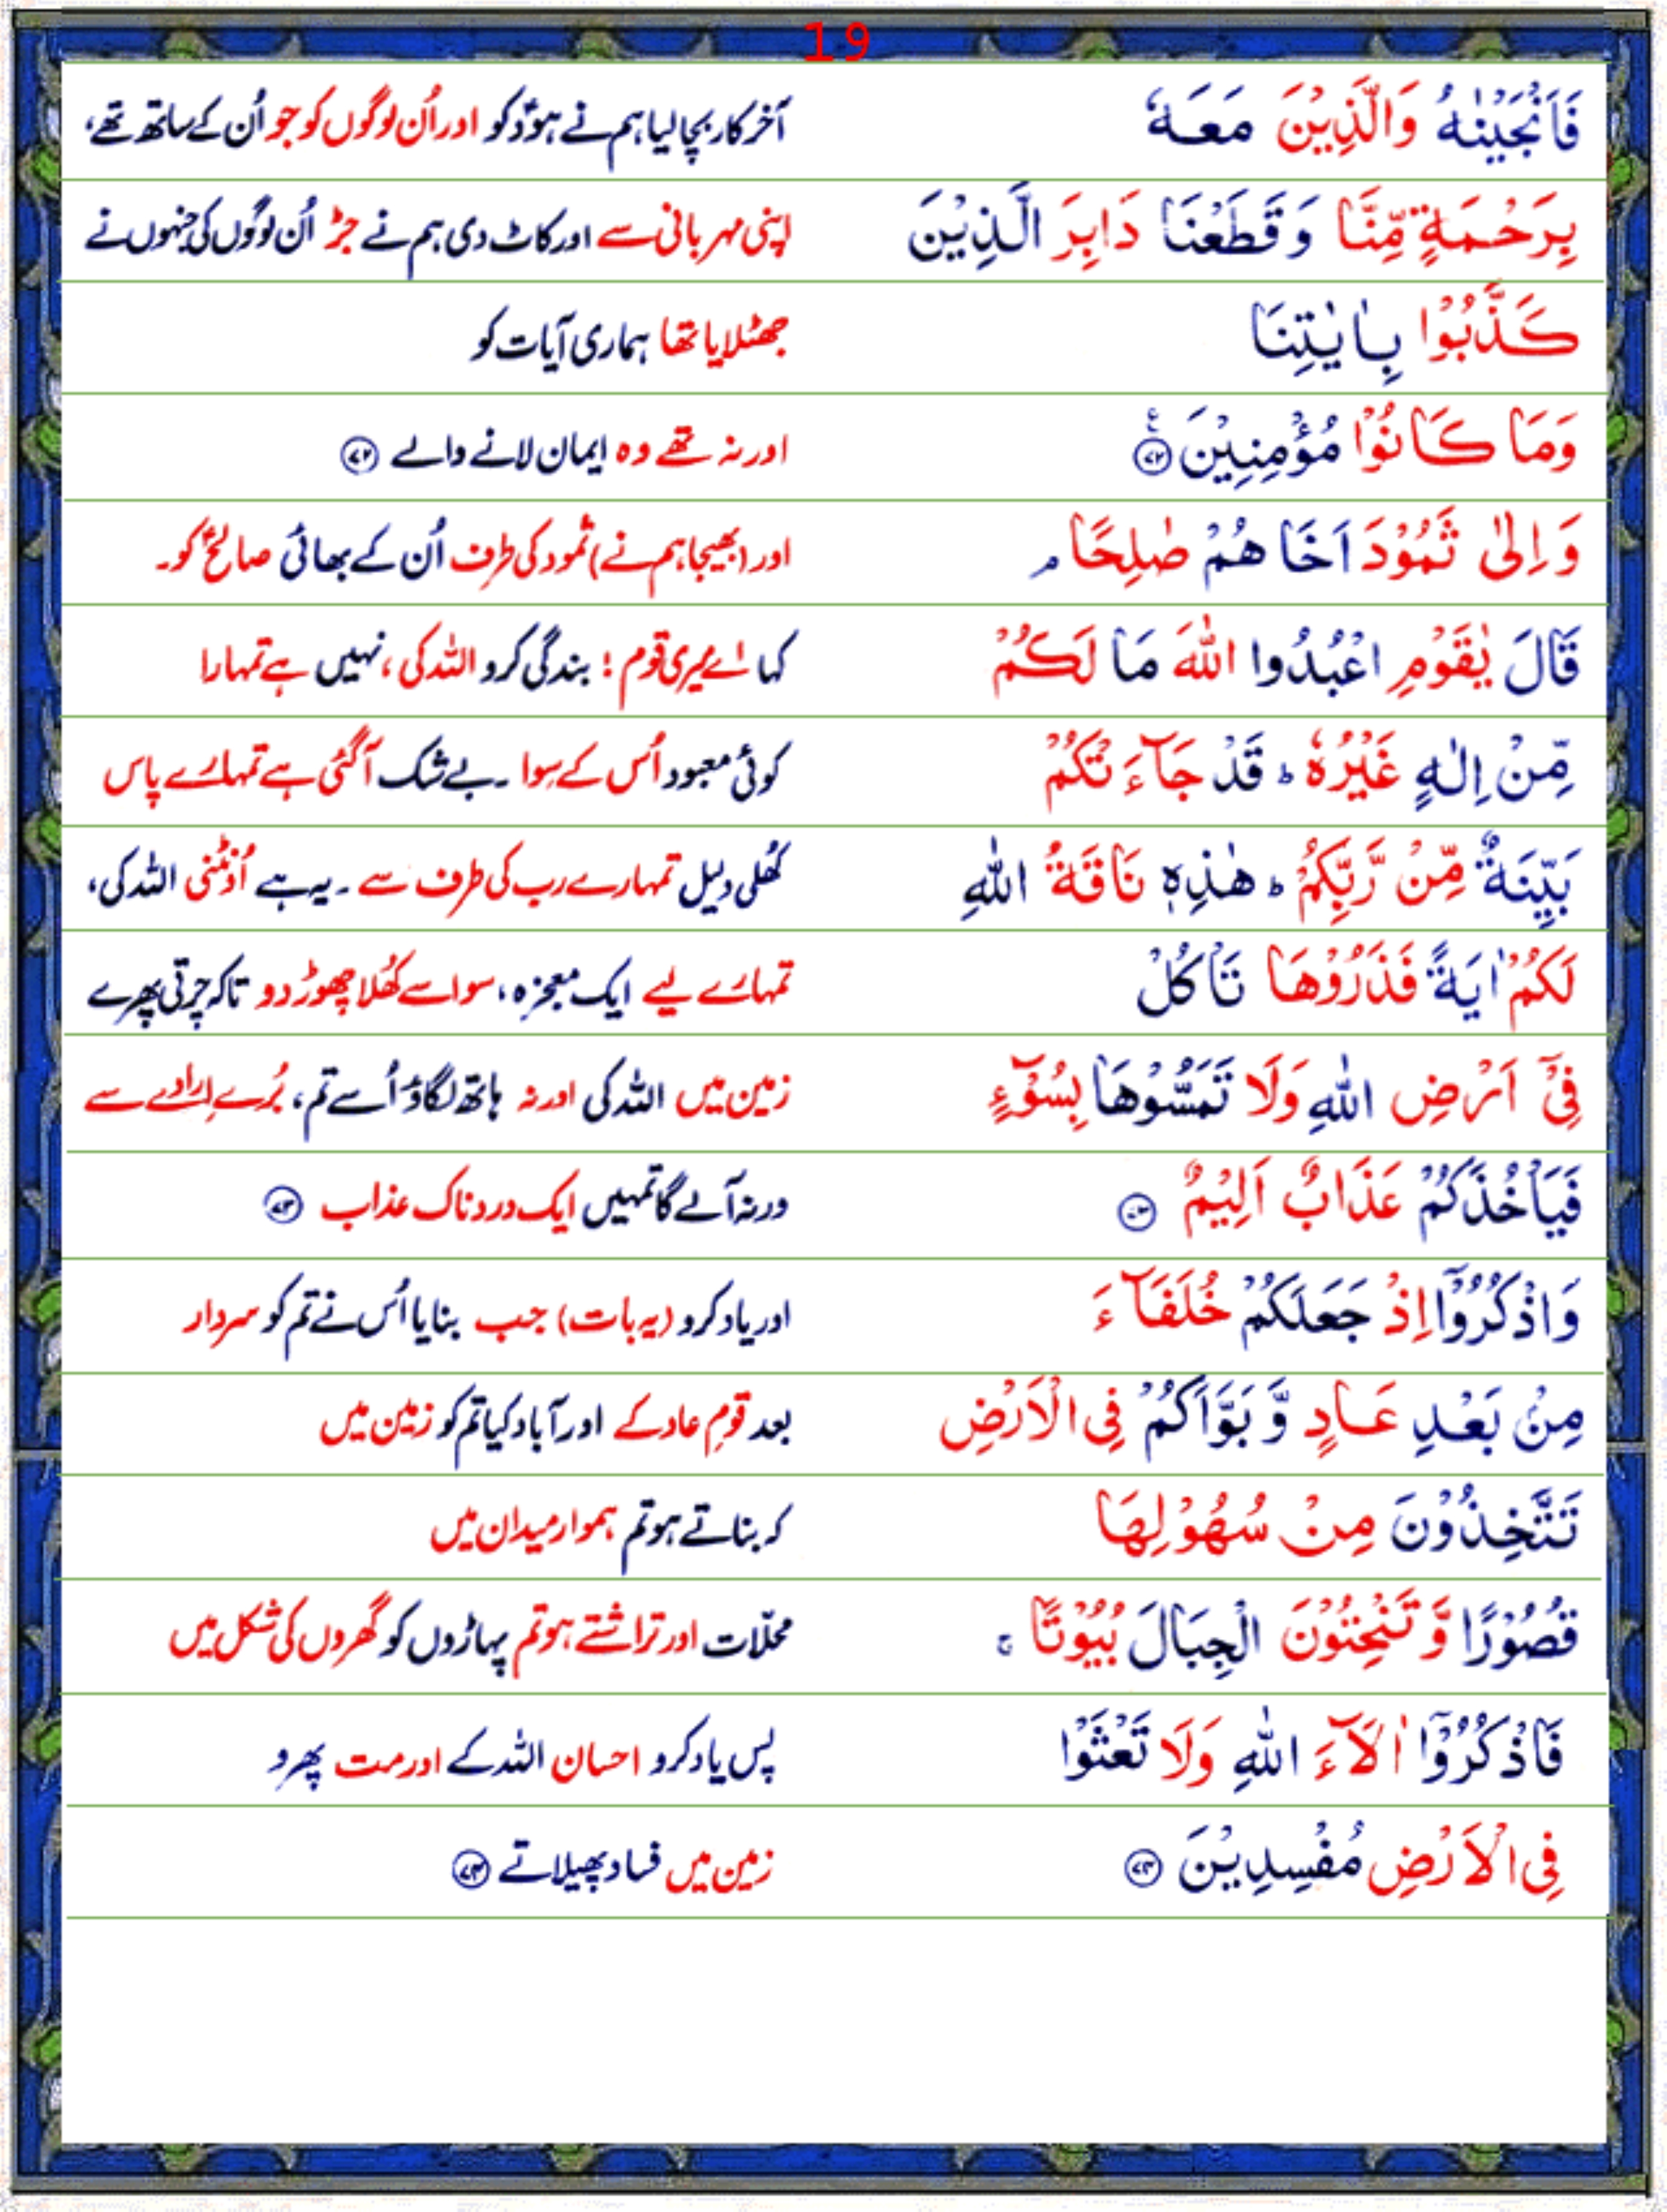 19
فَاَنْجَيْنٰهُ وَالَّذِيْنَ مَعَهٗ آخرکار بچا لیا ہم نے ہودؑ کو اور اُن لوگوں کو جو اُن کے ساتھ تھے،
بِرَحْمَةٍ مِّنَّا وَقَطَعْنَا دَابِرَ الَّذِيْنَ اپنی مہربانی سے اور کاٹ دی ہم نے جڑ اُن لوگوں کی جنہوں نے
كَذَّبُوْا بِاٰيٰتِنَا جھٹلایا تھا ہماری آیات کو
وَمَا كَانُوْا مُؤْمِنِيْنَ ۷۲ اور نہ تھے وہ ایمان لانے والے ۷۲
وَاِلٰى ثَمُوْدَ اَخَاهُمْ صٰلِحًا ۘ اور (بھیجا ہم نے) ثمود کی طرف اُن کے بھائی صالحؑ کو۔
قَالَ يٰقَوْمِ اعْبُدُوا اللّٰهَ مَا لَكُمْ کہا اے میری قوم! بندگی کرو اللہ کی، نہیں ہے تمہارا
مِّنْ اِلٰهٍ غَيْرُهٗ ؕ قَدْ جَآءَتْكُمْ کوئی معبود اُس کے سِوا۔ بے شک آ گئی ہے تمہارے پاس
بَيِّنَةٌ مِّنْ رَّبِّكُمْ ؕ هٰذِهٖ نَاقَةُ اللّٰهِ کھُلی دلیل تمہارے رب کی طرف سے۔ یہ ہے اُونٹنی اللہ کی،
لَكُمْ اٰيَةً فَذَرُوْهَا تَاْكُلْ تمہارے لیے ایک معجزہ، سو اسے کھُلا چھوڑ دو تاکہ چرتی پھرے
فِىْٓ اَرْضِ اللّٰهِ وَلَا تَمَسُّوْهَا بِسُوْٓءٍ زمین میں اللہ کی اور نہ ہاتھ لگاؤ اُسے تم، بُرے اِرادے سے
فَيَاْخُذَكُمْ عَذَابٌ اَلِيْمٌ ۷۳ ورنہ آلے گا تمہیں ایک دردناک عذاب ۷۳
وَاذْكُرُوْٓا اِذْ جَعَلَكُمْ خُلَفَآءَ اور یاد کرو (یہ بات) جب بنایا اُس نے تم کو سردار
مِنْۢ بَعْدِ عَادٍ وَّبَوَّاَكُمْ فِى الْاَرْضِ بعد قومِ عاد کے اور آباد کیا تم کو زمین میں
تَتَّخِذُوْنَ مِنْ سُهُوْلِهَا کہ بناتے ہو تم ہموار میدان میں
قُصُوْرًا وَّتَنْحِتُوْنَ الْجِبَالَ بُيُوْتًا ۚ محلّات اور تراشتے ہو تم پہاڑوں کو گھروں کی شکل میں
فَاذْكُرُوْٓا اٰلَآءَ اللّٰهِ وَلَا تَعْثَوْا پس یاد کرو احسان اللہ کے اور مت پھرو
فِى الْاَرْضِ مُفْسِدِيْنَ ۷۴ زمین میں فساد پھیلاتے ۷۴